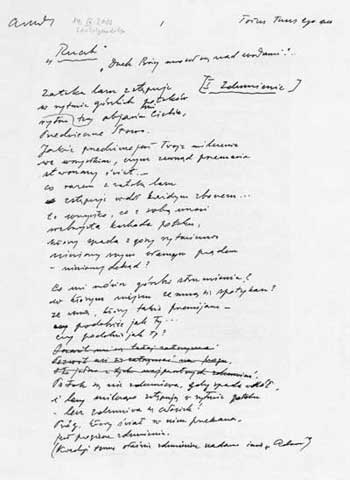 Totus Tuus ego sum
1
"Ruah"
"Duch Boży unosił się nad wodami"...
[I Zdumienie]
Zatoka lasu zstępuje
w rytmie górskich potoków
rytm ten objawia mi Ciebie,
Przedwieczne Słowo.
Jakże przedziwne jest Twoje milczenie
we wszystkim, czym zewsząd przemawia
stworzony świat...
co razem z zatoką lasu
zstępuje w dół każdym zboczem...
to wszystko, co z sobą unosi
srebrzysta kaskada potoku,
który spada z góry rytmicznie
niesiony swym własnym prądem
– niesiony dokąd?
Co mi mówisz górski strumieniu?
w którym miejscu ze mną się spotykasz?
ze mną, który także przemijam –
podobnie jak ty...
czy podobnie jak ty?
Pozwól mi się tutaj zatrzymać
pozwól mi się zatrzymać na progu,
oto jedno z tych najprostszych zdumień.
Potok się nie zdumiewa, gdy spada w dół
i lasy milcząco zstępują w rytmie potoku
– lecz zdumiewa się człowiek!
Próg, który świat w nim przekracza,
jest progiem zdumienia.
(Kiedyś temu właśnie zdumieniu nadano imię "Adam")